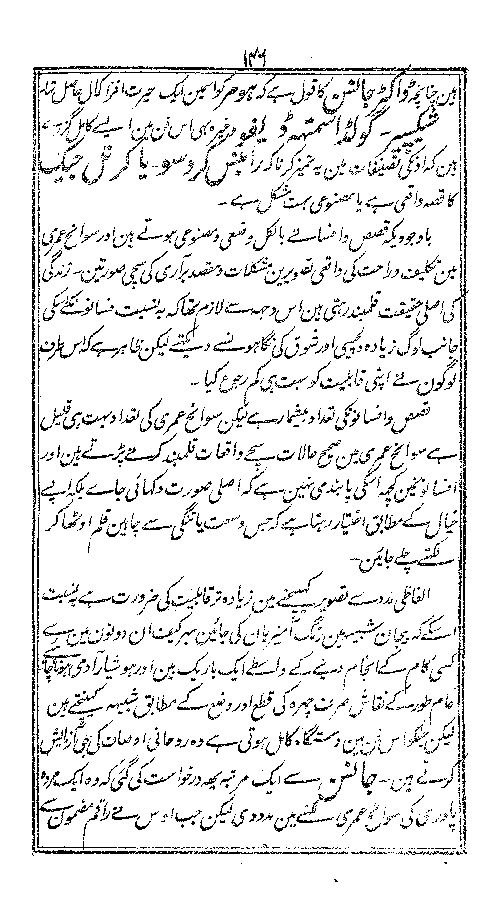 ۱۳۶
ہین چنانچہ ڈاکٹر جانسن کا قول ہے کہ ہومر کو اسمین ایک حیرت افزا کمال حاصل تھا
شکسپیر۔ گولڈ اسمتھ ڈیفو وغیرہ بھی اس فن مین ایسے کامل گزرے
ہین کہ اونکی تصنیفات مین یہ تمیز کرنا کہ رابنسن کروسو۔ یا کرنل جیک
کا قصہ واقعی ہے یا مصنوعی بہت مشکل ہے۔
باوجودیکہ قصص و افسانے بالکل وضعی و مصنوعی ہوتے ہین اور سوانح عمری
مین تکلیف و راحت کی واقعی تصویرین مشکلات و مقصد برآری کی سچی صورتین۔ زندگی
کی اصلی حقیقت قلمبند رہتی ہین اس وجہ سے لازم تھا کہ بہ نسبت فسانونکے اسکی
جانب لوگ زیادہ دلچسپی اور شوق کی نگاہونسے دیکھتے لیکن ظاہر ہے کہ اس طرف
لوگون نے اپنی قابلیت کو بہت ہی کم رجوع کیا۔
قصص و افسانونکی تعداد بیشمار ہے لیکن سوانح عمری کی تعداد بہت ہی قلیل
ہے سوانح عمری مین صحیح حالات سچے واقعات قلمبند کرنے پڑتے ہین اور
افسانونمین کچھ اسکی پابندی نہین ہے کہ اصلی صورت دکھائی جاے بلکہ اپنے
خیال کے مطابق اختیار رہتا ہے کہ جس وسعت یا تنگی سے چاہین قلم اوٹھا کر
لکھتے چلے جائین۔
الفاظی مدد سے تصویر کھینچنے مین زیادہ تر قابلیت کی ضرورت ہے بہ نسبت
اسکے کہ بیجان شبیہ مین رنگ آمیزیان کی جائین بہرکیف ان دونون مین سے
کسی کام کے انجام دینے کے واسطے ایک باریک بین اور ہوشیار آدمی ہونا چاہیے
عام طور کے نقاش صرف چہرہ کی قطع اور وضع کے مطابق شبیہ کھینچتے ہین
لیکن جنکو اس فن مین دستگاہ کامل ہوتی ہے وہ روحانی اوصاف کی بھی آرایش
کرتے ہین۔ جانسن سے ایک مرتبہ یہ درخواست کی گئی کہ وہ ایک مردہ
پادری کی سوانح عمری لکھنے مین مدد دی لیکن جب اوس نے راقم مضمون سے